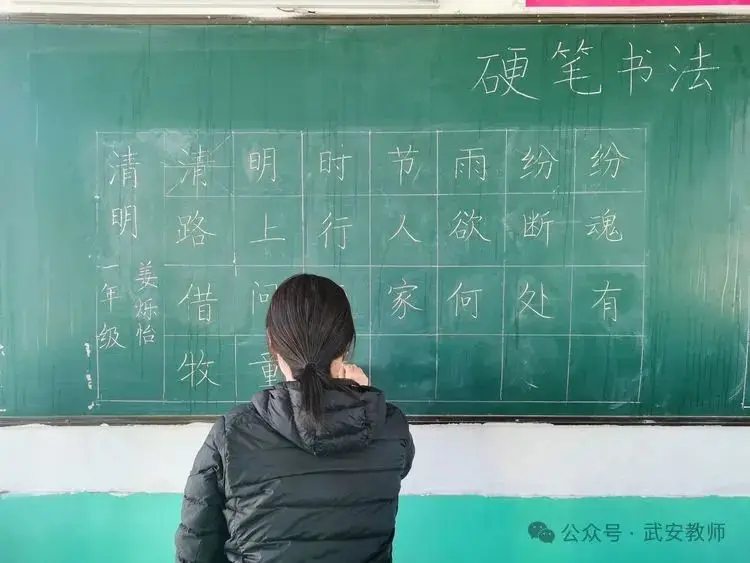 硬笔书法
清明
一年级
姜烁怡
清明时节雨纷纷
路上行人欲断魂
借问家何处有
牧童
公众号·武安教师